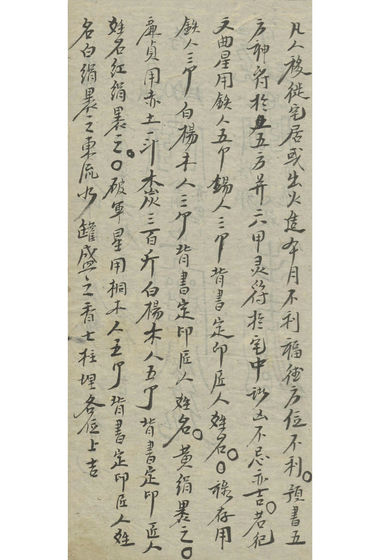 凡人移徙宅居或出火造年月不利福德方位不利。預書五
方神符於五方并六甲灵符於宅中諸凶不忌亦吉。若犯
文曲星用鉄人五个錫人三个背書定印匠人姓名。祿存用
鉄人三个白楊木人三个背書定印匠人姓名。黄絹裹之。
廉貞用赤土一斗木炭三百斤白楊木人五个背書定印匠人
姓名紅絹裹之。破軍星用桐木人五个背書定印匠人姓
名白絹裹之東流水罐盛之香七柱埋各位上吉